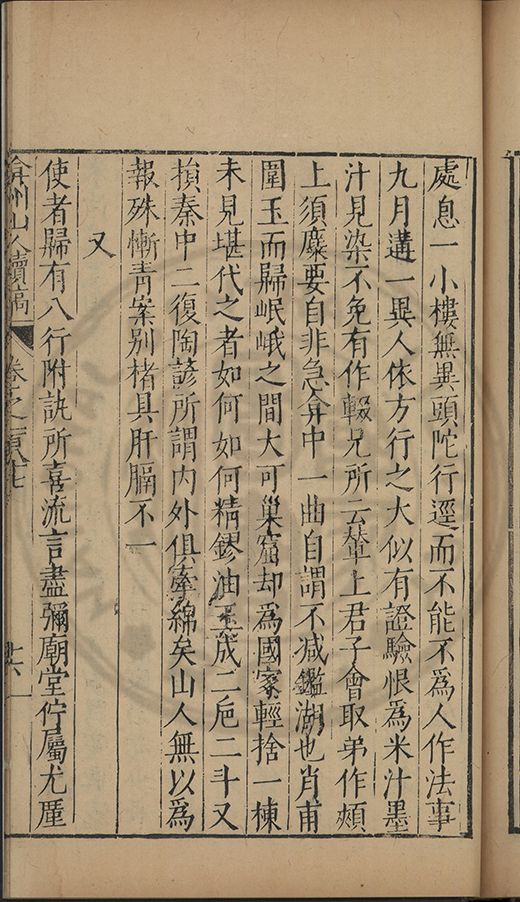 處息一小樓無異頭陀行逕而不能不為人作法事
九月遘一異人依方行之大似有證驗恨為米汁墨
汁見染不免有作輟兄所云輦上君子會取弟作頰
上須麋要自非急弇中一曲自謂不減鑑湖也肖甫
圍玉而歸岷峨之間大可巢窟却為國家輕捨一棟
未見堪代之者如何如何精鏐油 成二巵二斗又
損秦中二復陶諺所謂內外俱牽綿矣山人無以為
報殊慚青案別楮具肝膈不一
又
使者歸有八行附訊所喜流言盡彌廟堂佇屬尤厪
弇州山人續稿 卷之一百 七